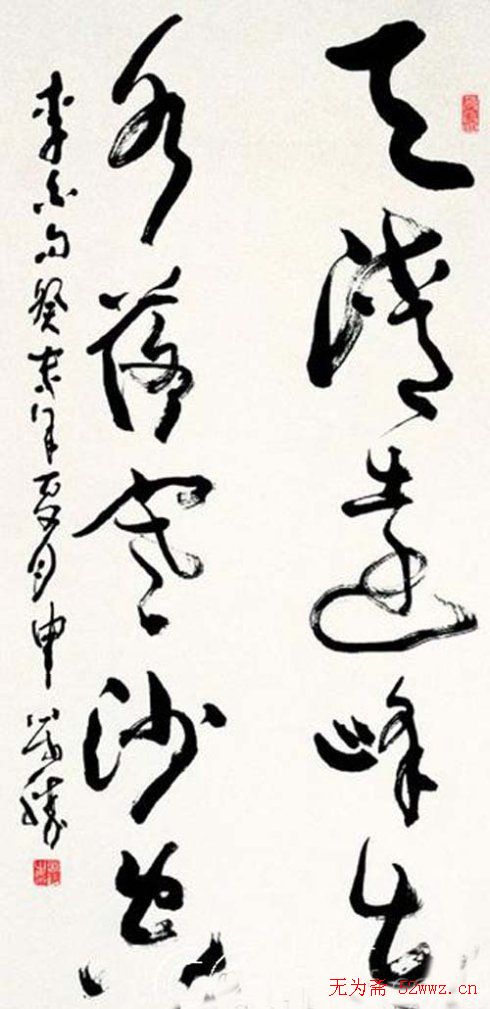 天清遠峰出
水落寒沙空
李白句癸未年夏月申萬勝
无为斋 52wwz.cn